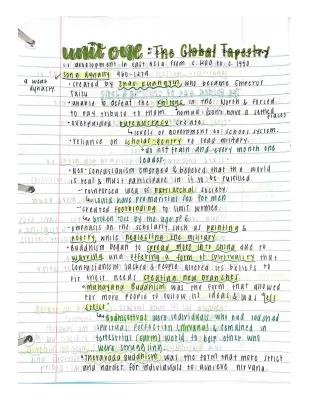 unit one: The Global Tapestry
↳ development in east asia from c. 1200 to c. 1450
a weak dynasty.
song dynasty 960-1279
• created by who became Emperor
Taizu
• unable to defeat the in the North & forced
to pay tribute to them. nomad: don't have a settled places
• expanded bureaucracy
↳ levels of government or school system.
• reliance on scholar gentry to lead military.
↳ do not train and every month one
leader.
• Neo-Confucianism emerged & believed that the world
is real & must participate in it to be fulfilled.
- reinforced idea of patriarchal society.
↳ could have premarital sex for men
- created footbinding to limit women.
↳ broken toes by the age of 6.
• emphasis on the scholarly such as painting &
poetry, while neglecting the military.
• Buddhism began to spread more into china due to
warring and offering a form of spirituality that
confucianism lacked & people altered its beliefs to
fit their needs creating new branches.
• mahayana Buddhism was the form that allowed
for more people to follow its ideals & was less
strict.
↳ bodhisattvas were individuals who had reached
spiritual perfection (nirvana) & remained in
terrestrial (earth) world to help other who
were struggling.
• Theravada Buddhism was the form that more strict
and harder for individuals to achieve nirvana.